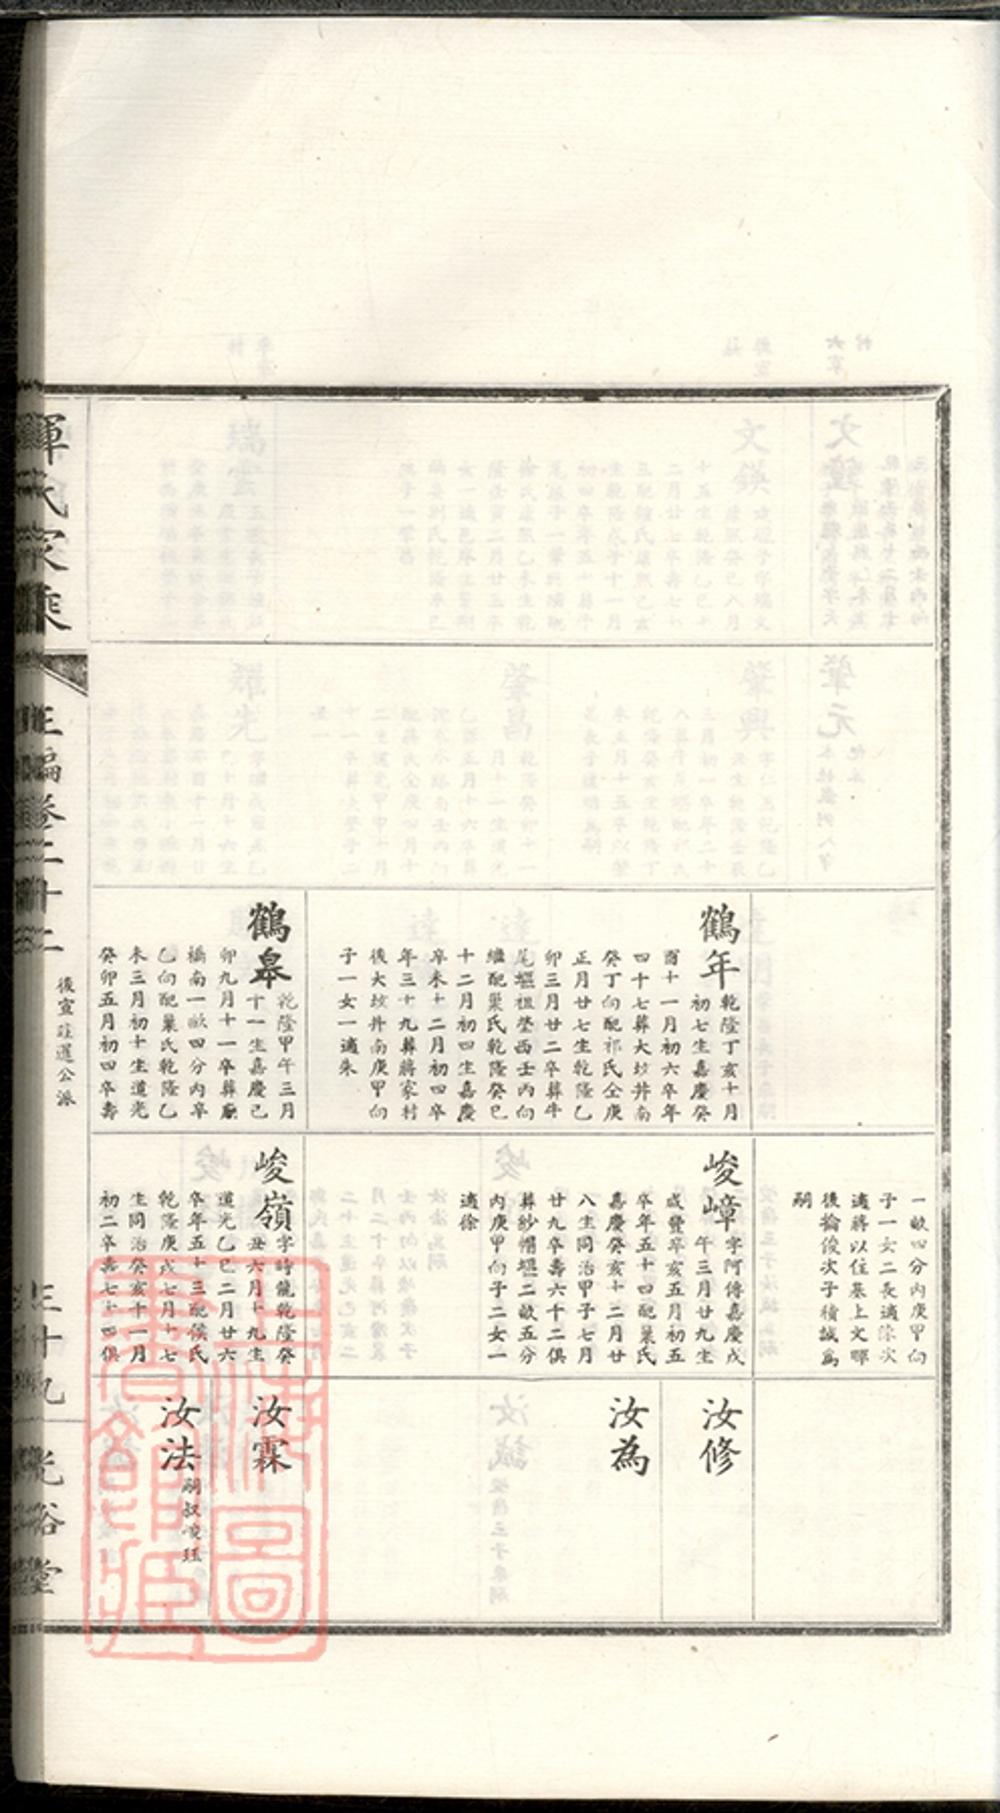 鶴年
乾隆丁亥十月
初七生嘉慶癸
酉十一月初六卒年
四十七葬大坟井南
癸丁向配祁氏仝庚
正月廿七生乾隆乙
卯三月廿二卒葬牛
尾堰祖塋西壬丙向
繼配巢氏乾隆癸巳
十二月初四生嘉慶
辛未十二月初四卒
年三十九葬蔣家村
後大坟井南庚甲向
子一女一適朱
鶴皋
乾隆甲午三月
十一生嘉慶己
卯九月十一卒葬廟
橋南一畝四分內辛
乙向配巢氏乾隆乙
未三月初十生道光
癸卯五月初四卒壽
一畝四分內庚甲向
子一女二長適陳次
適蔣以住基上文暉
後掄俊次子積誠為
嗣
峻嶂
字阿傳嘉慶戊
午三月廿九生
咸豐辛亥五月初五
卒年五十四配巢氏
嘉慶癸亥十二月廿
八生同治甲子七月
廿九卒壽六十二俱
葬紗帽堰二畝五分
內庚甲向子二女一
適徐
峻嶺
字時龍乾隆癸
丑六月十九生
道光乙巳二月廿六
卒年五十三配侯氏
乾隆庚戌七月十七
生同治癸亥十一月
初二卒壽七十四俱
汝修
汝為
汝霖
汝法
嗣叔峻珏
惲氏家乘
正編卷二十二
後宣莊暹公派
三十九
光裕堂